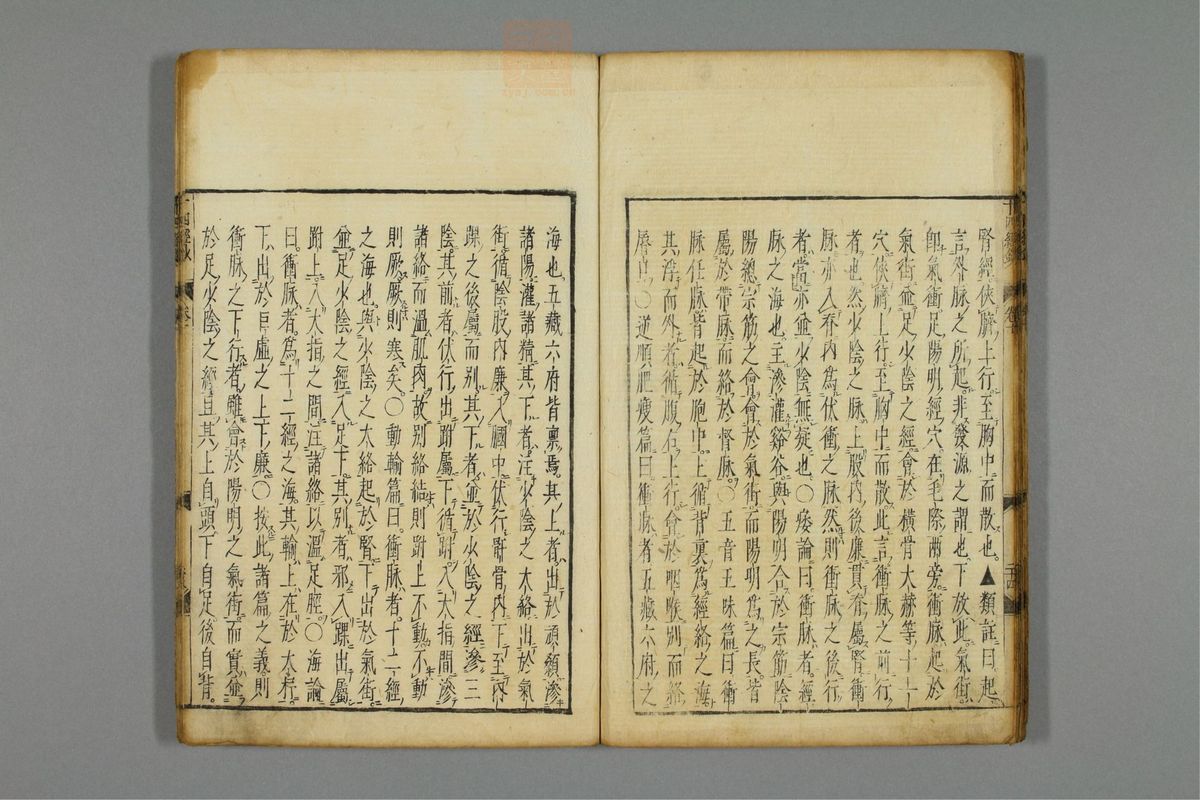 腎經俠臍上行至胸中而散也▲類註曰起
言外脉之所起非發源之謂也下放此氣街
即氣衝足陽明經穴在毛際兩旁衝脉起於
氣街並足少陰之經會於橫骨大赫等十一
穴俠臍上行至胸中而散此言衝脉之前行
者也然少陰之脉上股內後廉貫脊屬腎衝
脉亦入脊內為伏衝之脉然則衝脉之後行
者當亦並少陰無疑也○痿論曰衝脉者經
脉之海也主滲灌谿谷與陽明合於宗筋陰
陽總宗筋之會會於氣街而陽明為之長皆
屬於帶脉而絡於督脉○五音五味篇曰衝
脉任脉皆起於胞中上循背裏為經絡之海
其浮而外者循腹右上行會於咽喉別而絡
唇口○逆順肥瘦篇曰衝脉者五藏六府之
海也五藏六府皆稟焉其上者出於頏顙滲
諸陽灌諸精其下者注少陰之大絡出於氣
街循陰股內廉入膕中伏行骭骨內下至內
踝之後屬而別其下者並於少陰之經滲三
陰其前者伏行出跗屬下循跗入大指間滲
諸絡而溫肌肉故別絡結則跗上不動不動
則厥厥則寒矣○動輸篇曰衝脉者十二經
之海也與少陰之大絡起於腎下出於氣街
並足少陰之經入足下其別者邪入踝出屬
跗上入大指之間注諸絡以溫足脛○海論
曰衝脉者為十二經之海其輸上在於大杼
下出於巨虛之上下廉○按此諸篇之義則
衝脉之下行者雖會於陽明之氣街而實並
於足少陰之經且其上自頭下自足後自背